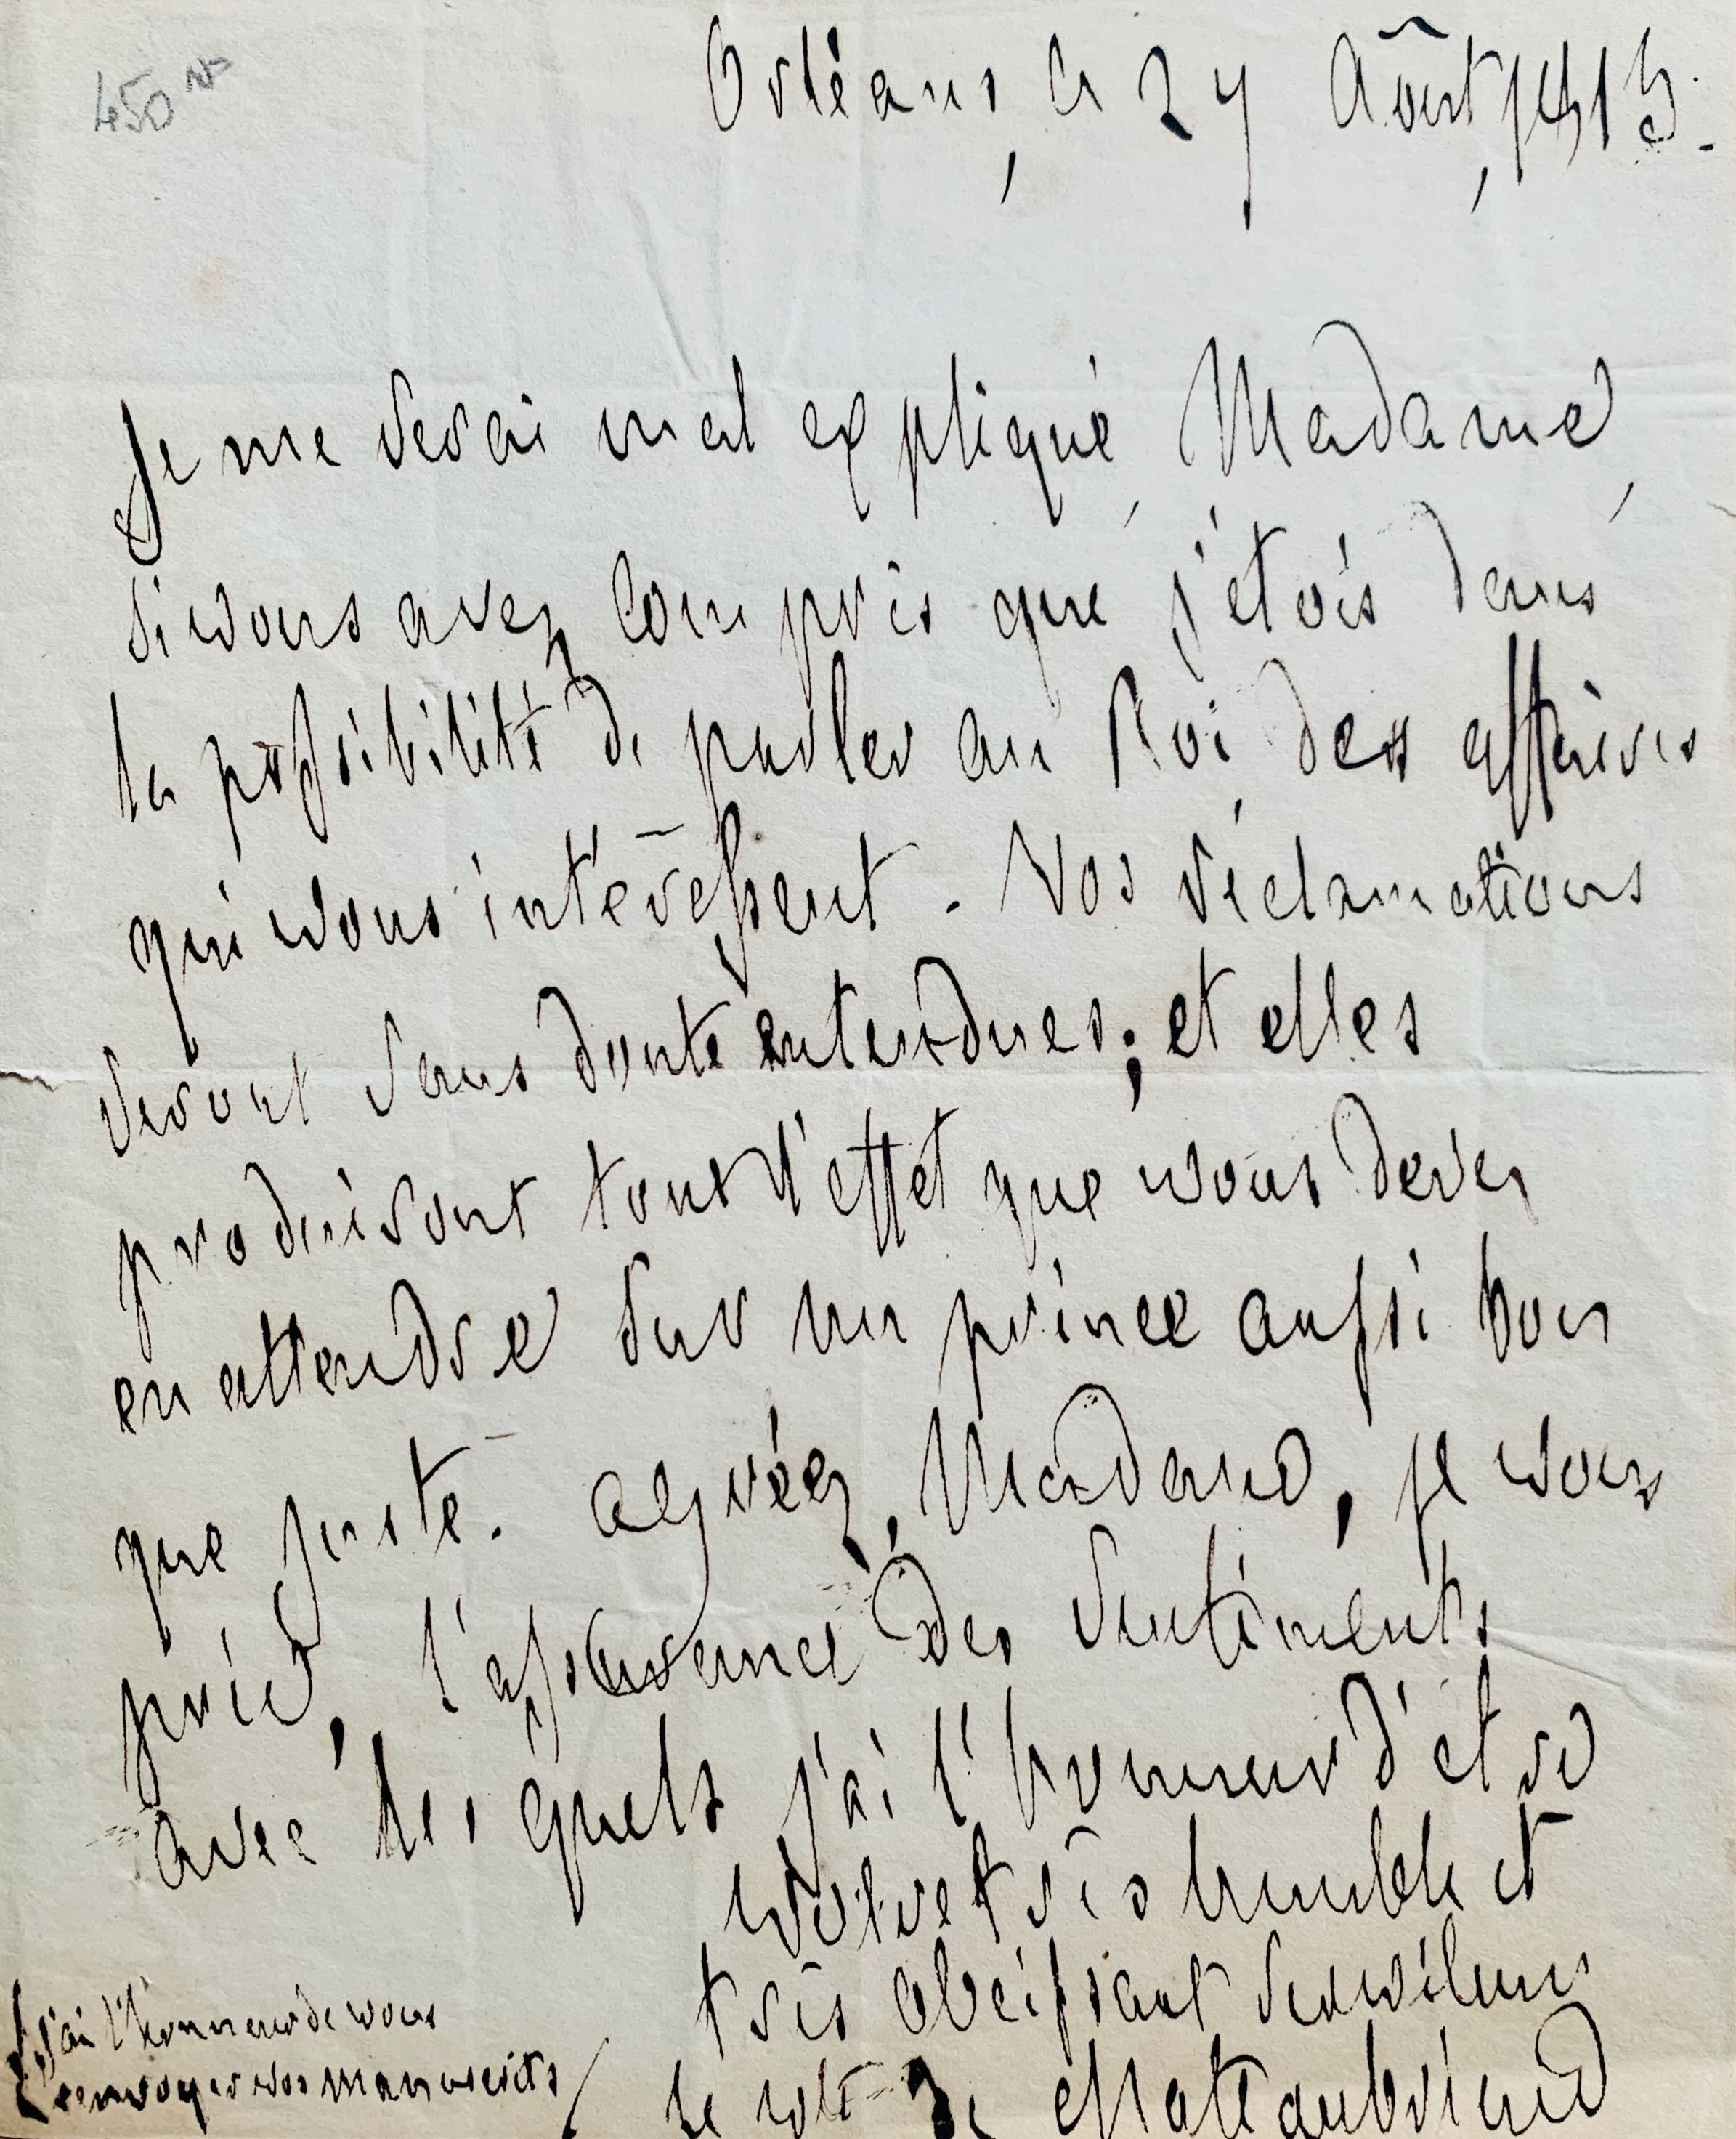 450
Orléans, le 27 Août, 1815.
Je me serai mal expliqué, Madame,
si vous avez compris que j'étois dans
la possibilité de parler au Roi des affaires
qui vous intéressent. Vos réclamations
seront sans doute entendues; et elles
produiront tout l'effet que vous devez
en attendre sur un prince aussi bon
que juste. agréez, Madame, je vous
prie, l'assurance des sentiments
avec lesquels j'ai l'honneur d'être
votre très humble et
très obéissant serviteur
le vte de Chateaubriand
j'ai l'honneur de vous
renvoyer vos manuscrits